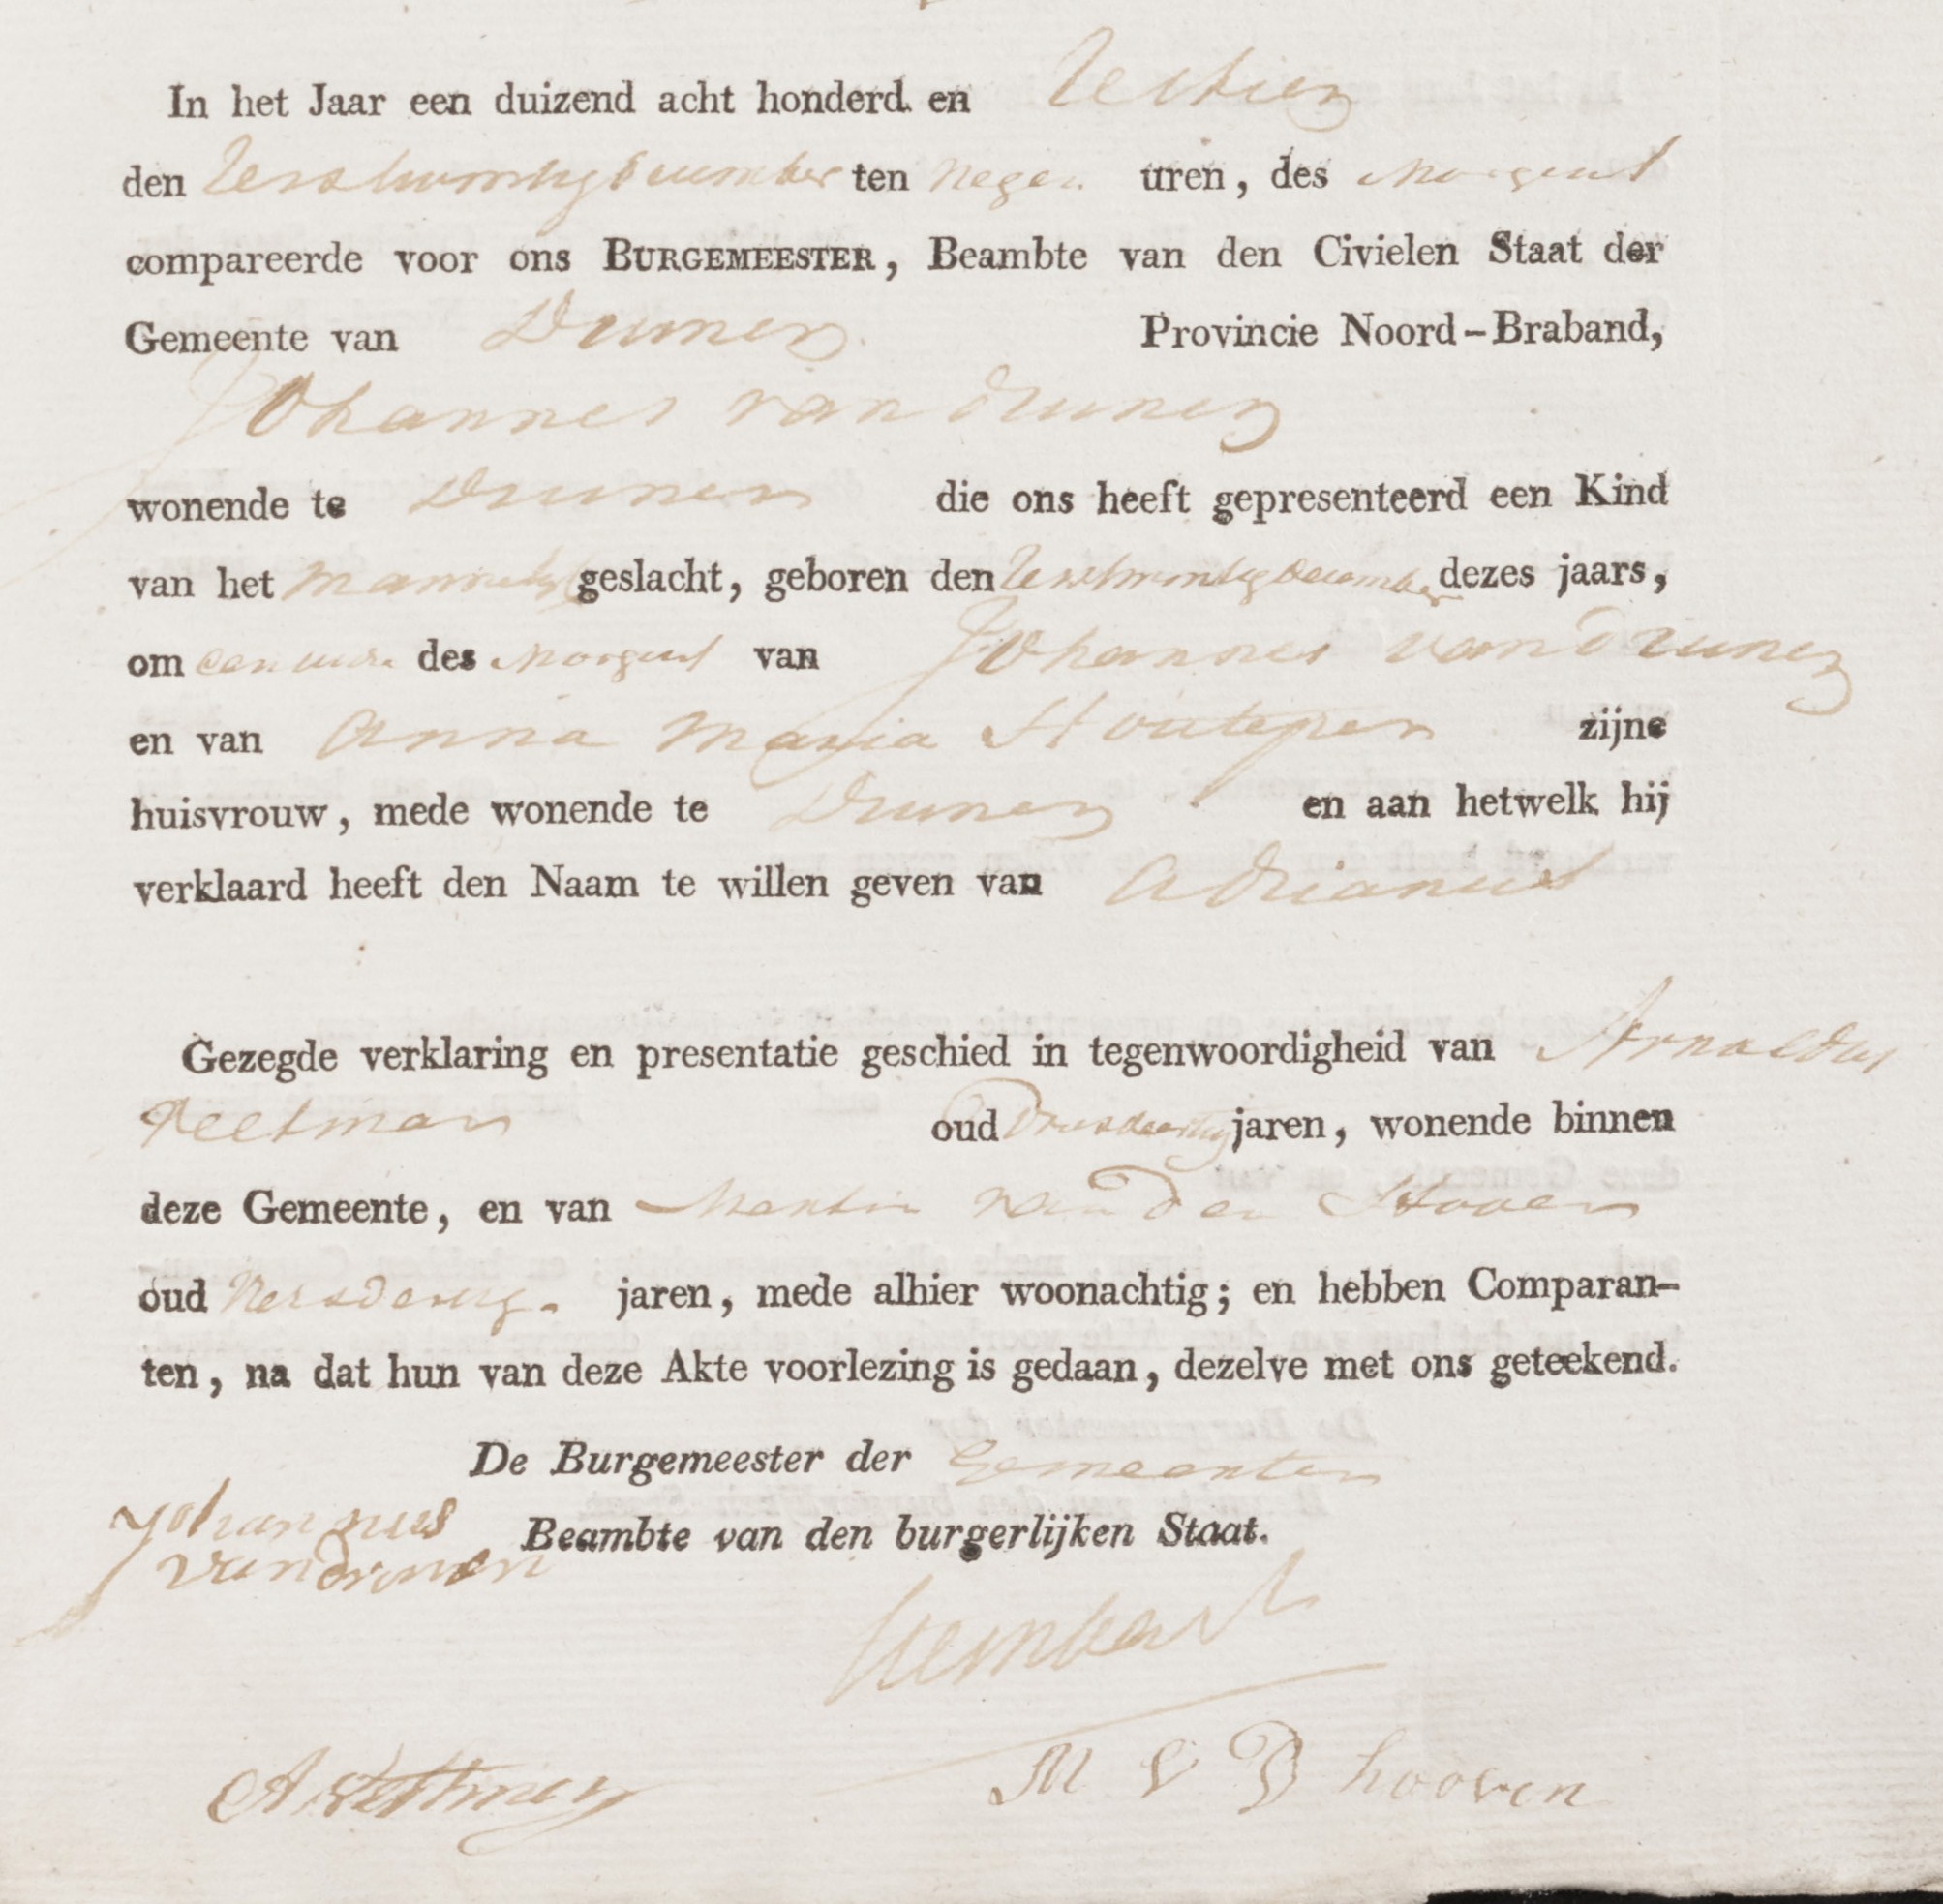 In het Jaar een duizend acht honderd en Zestien
den Zesentwintig december ten Negen uren, des Morgens
compareerde voor ons BURGEMEESTER, Beambte van den Civielen Staat der
Gemeente van Drunen Provincie Noord-Braband,
Johannes van drunen
wonende te Drunen die ons heeft gepresenteerd een Kind
van het Mannelijk geslacht, geboren den december dezes jaars,
om een ure des Morgens van Johannes van drunen
en van Anna Maria Houtepen zijne
huisvrouw, mede wonende te Drunen en aan hetwelk hij
verklaard heeft den Naam te willen geven van Adrianus
Gezegde verklaring en presentatie geschied in tegenwoordigheid van Arnoldus
oud jaren, wonende binnen
deze Gemeente, en van van den Hoven
oud jaren, mede alhier woonachtig; en hebben Comparan-
ten, na dat hun van deze Akte voorlezing is gedaan, dezelve met ons geteekend.
De Burgemeester der Gemeenten
Beambte van den burgerlijken Staat.
Johannes
van drunen
M V D hooven